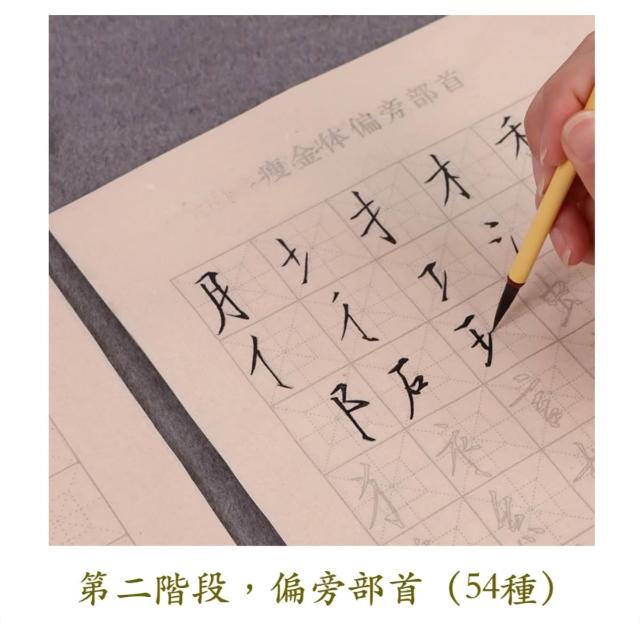 瘦金体偏旁部首
月 土 扌 木 禾
亻 彳 工 冫
阝 石 王
第二階段，偏旁部首（54種）